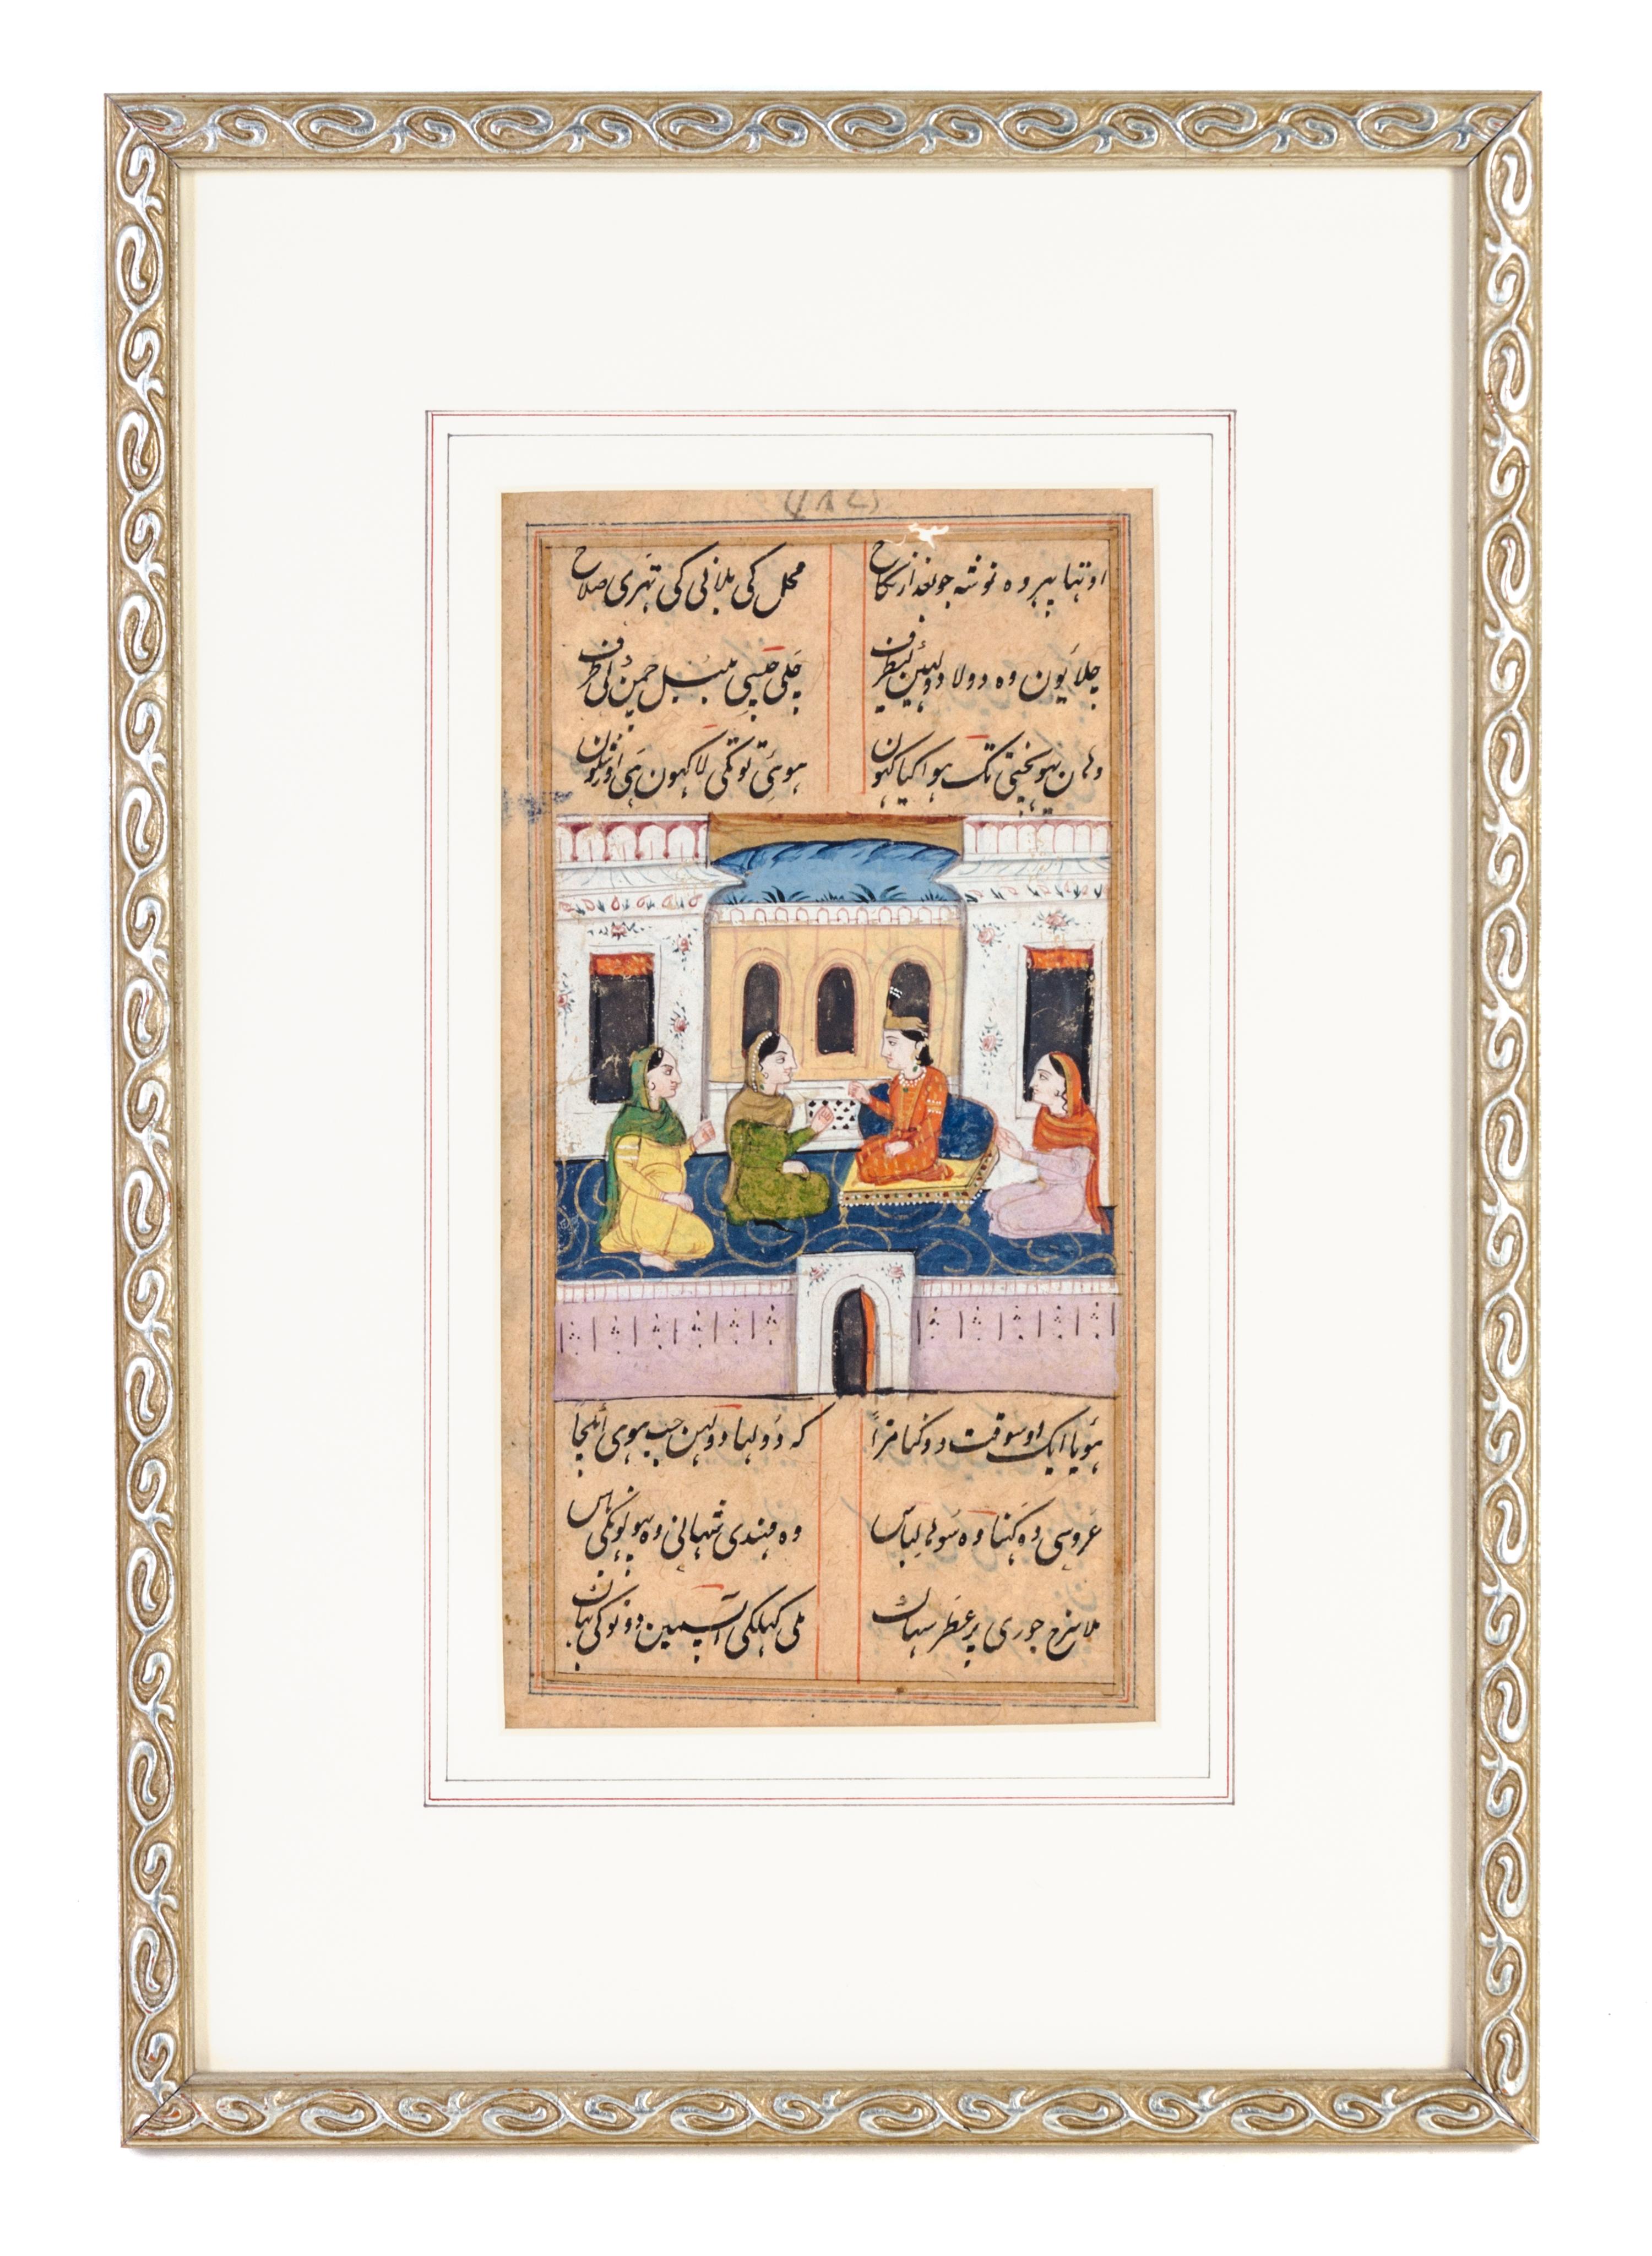 اوتہا پہر وہ نوشہ جو بعد از نکاح محل کی بلانی کی تہری صلاح
چلا یون وہ دولا دولہین کیطرف چلی جیسی بلبل چمن کی طرف
وہان پہونچتی تک ہوا کیا کہون ہوئی توتکی لاکہون ہی اور شکون
ہویا ایک اوسوقت دوکنا مزا کہ دولہا دولہن جب ہوی ایکجا
عروسی وہ کہنا وہ سوہا لباس وہ مہندی سہانی وہ پہولونکی باس
ملا سرخ جوری پر عطر سہاک ملی کہلکی آپسمین دونوکی بہاک